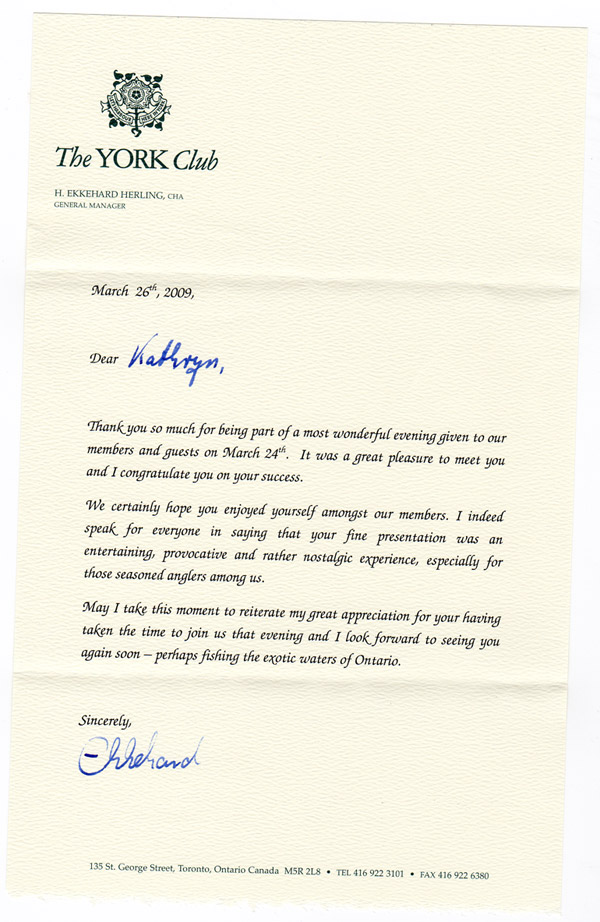 The YORK Club
H. EKKEHARD HERLING, CHA
GENERAL MANAGER
March 26th, 2009,
Dear Kathryn,
Thank you so much for being part of a most wonderful evening given to our
members and guests on March 24th. It was a great pleasure to meet you
and I congratulate you on your success.
We certainly hope you enjoyed yourself amongst our members. I indeed
speak for everyone in saying that your fine presentation was an
entertaining, provocative and rather nostalgic experience, especially for
those seasoned anglers among us.
May I take this moment to reiterate my great appreciation for your having
taken the time to join us that evening and I look forward to seeing you
again soon – perhaps fishing the exotic waters of Ontario.
Sincerely,
Ekkehard
135 St. George Street, Toronto, Ontario Canada M5R 2L8 • TEL 416 922 3101 • FAX 416 922 6380